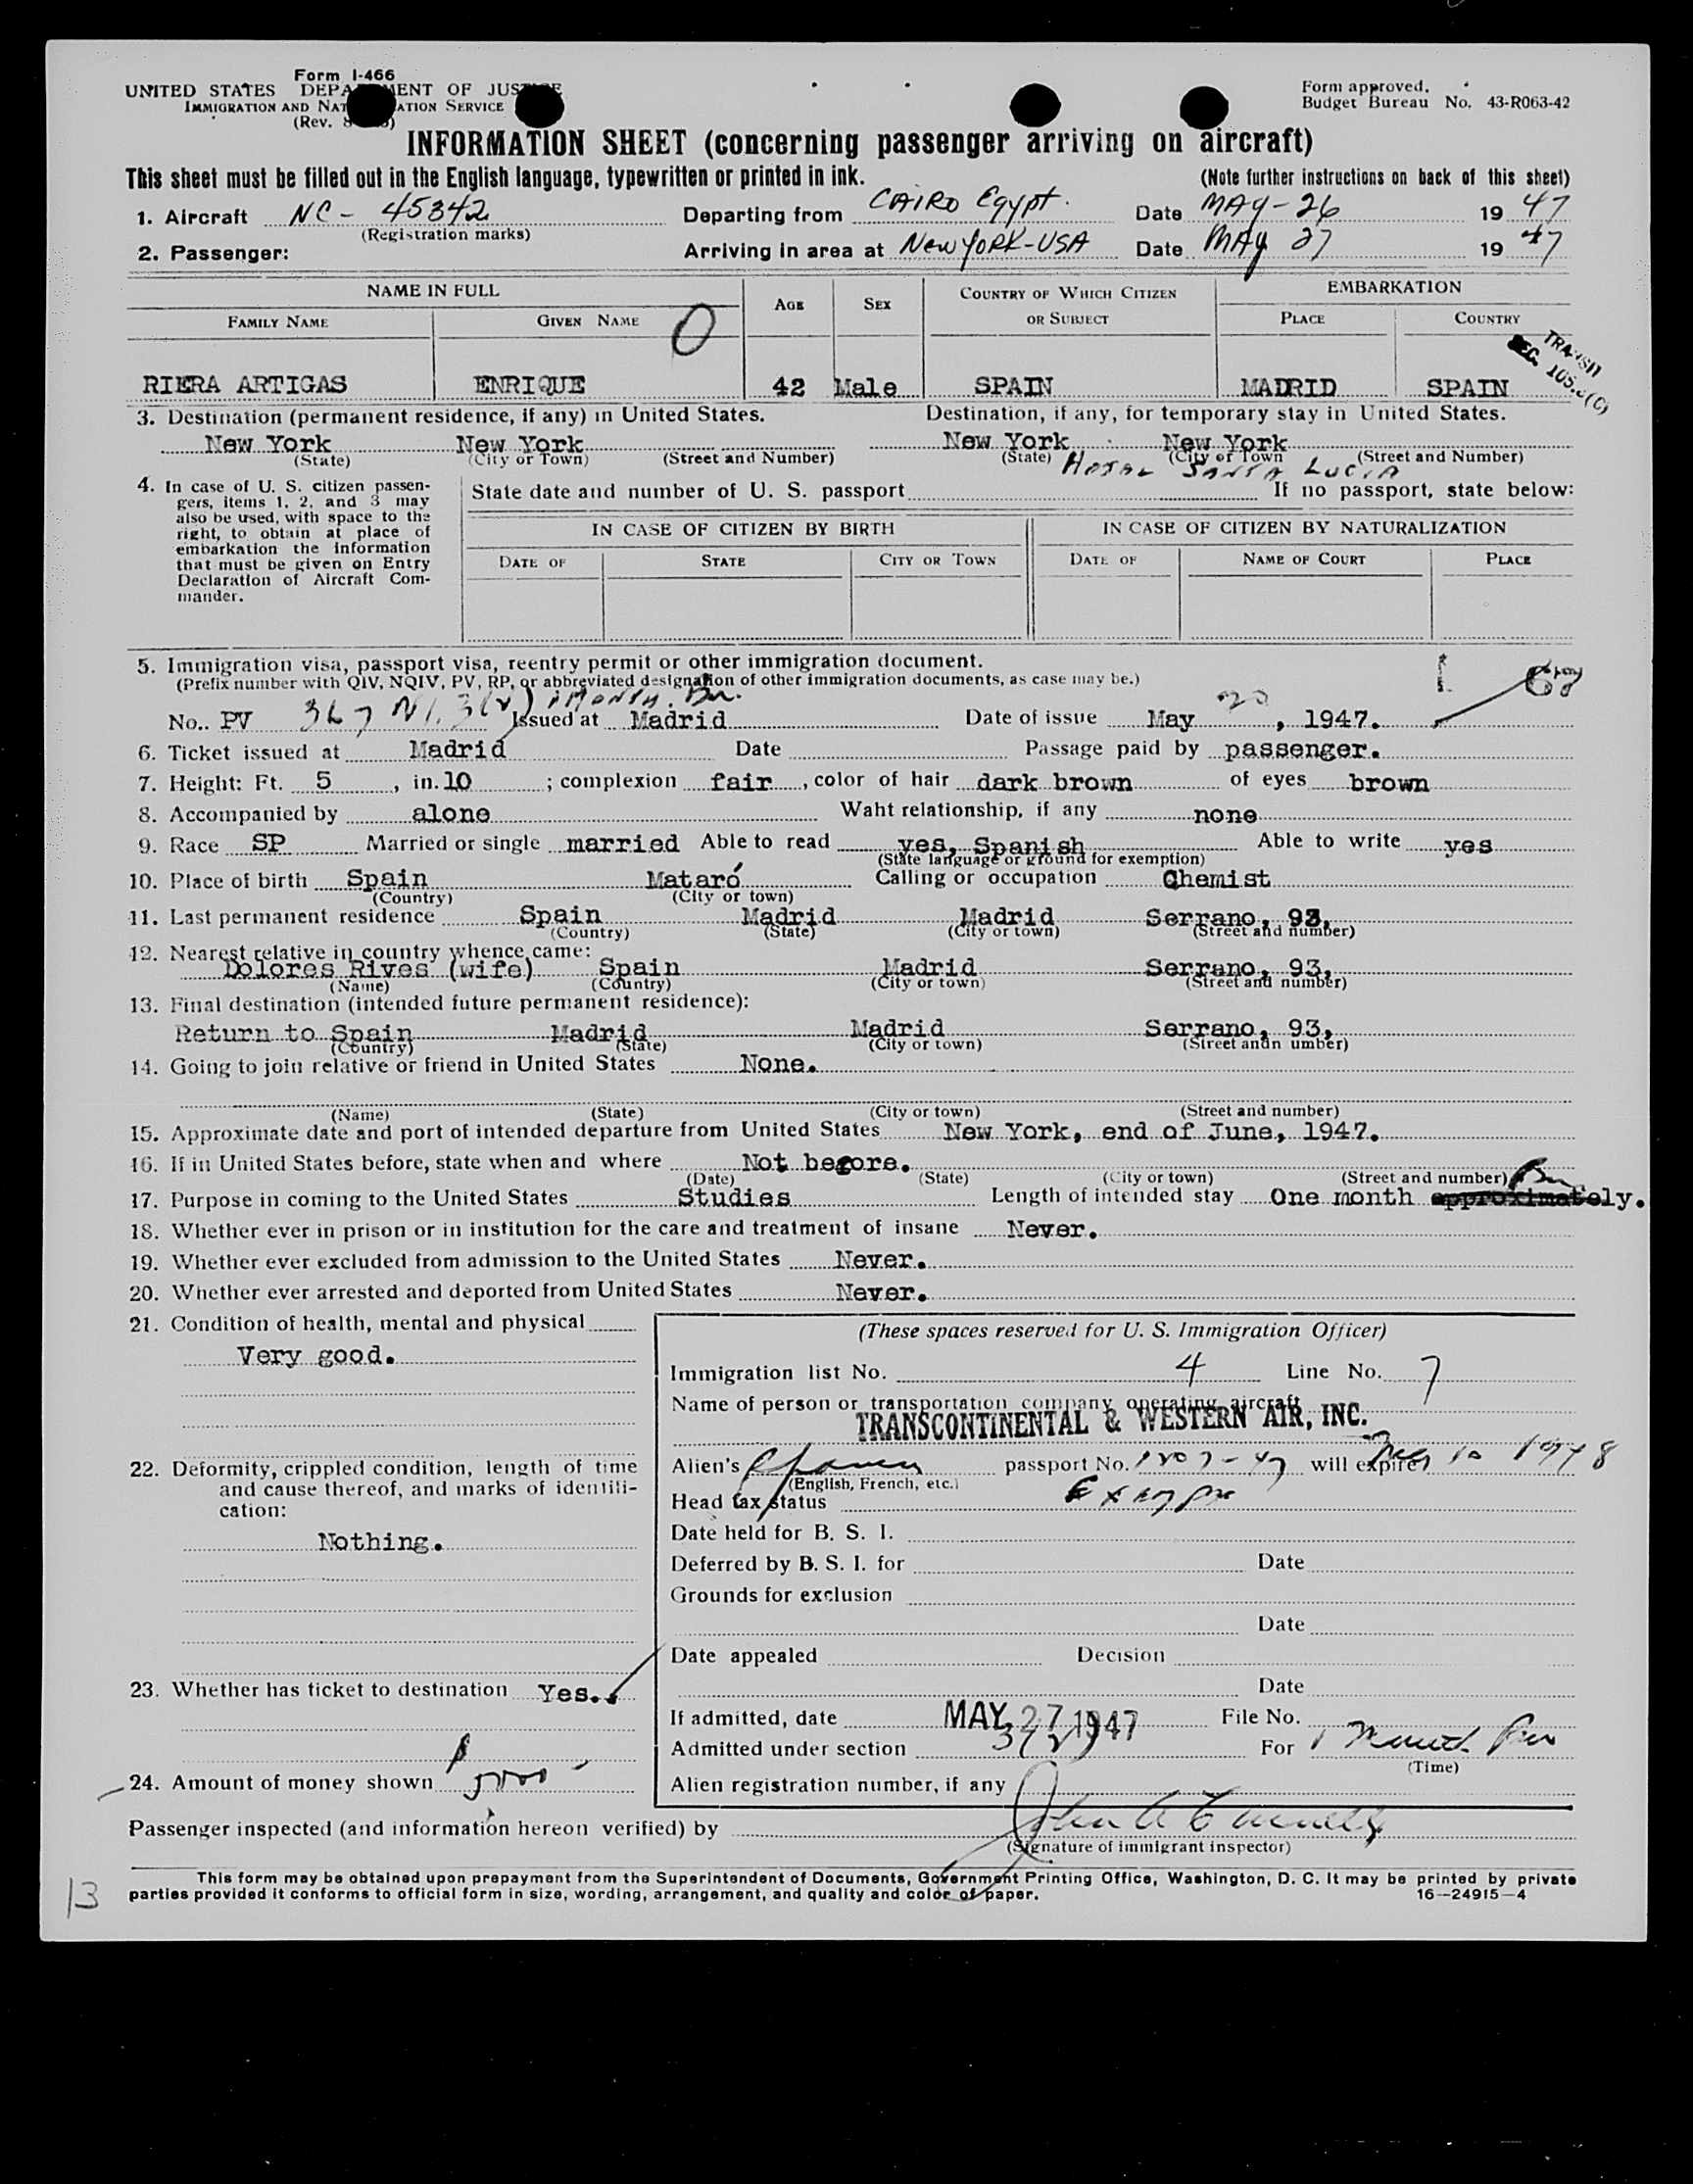 Form I-466
UNITED STATES DEPARTMENT OF JUSTICE
IMMIGRATION AND NATURALIZATION SERVICE
(Rev.
Form approved.
Budget Bureau No. 43-R063-42
INFORMATION SHEET (concerning passenger arriving on aircraft)
This sheet must be filled out in the English language, typewritten or printed in ink. (Note further instructions on back of this sheet)
1. Aircraft NC - 45342 Departing from CAIRO Egypt. Date MAY-26 19 47
(Registration marks)
2. Passenger: Arriving in area at New YORK-USA Date MAY 27 19 47
NAME IN FULL AGE SEX COUNTRY OF WHICH CITIZEN OR SUBJECT EMBARKATION
FAMILY NAME GIVEN NAME PLACE COUNTRY
O
TRANSIT
SEC. 105.3(C)
RIERA ARTIGAS ENRIQUE 42 Male SPAIN MADRID SPAIN
3. Destination (permanent residence, if any) in United States. Destination, if any, for temporary stay in United States.
New York New York New York New York
(State) (City or Town) (Street and Number) (State) (City or Town (Street and Number)
HOTAL SANTA LUCIA
4. In case of U. S. citizen passengers, items 1, 2, and 3 may also be used, with space to the right, to obtain at place of embarkation the information that must be given on Entry Declaration of Aircraft Commander.
State date and number of U. S. passport If no passport, state below:
IN CASE OF CITIZEN BY BIRTH IN CASE OF CITIZEN BY NATURALIZATION
DATE OF STATE CITY OR TOWN DATE OF NAME OF COURT PLACE
5. Immigration visa, passport visa, reentry permit or other immigration document.
(Prefix number with QIV, NQIV, PV, RP, or abbreviated designation of other immigration documents, as case may be.)
No.. PV 367 NI. 3(2) 1 Month. Issued at Madrid Date of issue May 20, 1947.
6. Ticket issued at Madrid Date Passage paid by passenger.
7. Height: Ft. 5, in. 10; complexion fair, color of hair dark brown of eyes brown
8. Accompanied by alone Waht relationship, if any none
9. Race SP Married or single married Able to read yes, Spanish Able to write yes
(State language or ground for exemption)
10. Place of birth Spain Mataró Calling or occupation Chemist
(Country) (City or town)
11. Last permanent residence Spain Madrid Madrid Serrano, 93,
(Country) (State) (City or town) (Street and number)
12. Nearest relative in country whence came:
Dolores Rives (wife) Spain Madrid Serrano, 93,
(Name) (Country) (City or town) (Street and number)
13. Final destination (intended future permanent residence):
Return to Spain Madrid Madrid Serrano, 93,
(Country) (State) (City or town) (Street andn umber)
14. Going to join relative or friend in United States None.
(Name) (State) (City or town) (Street and number)
15. Approximate date and port of intended departure from United States New York, end of June, 1947.
16. If in United States before, state when and where Not before.
(Date) (State) (City or town) (Street and number)
17. Purpose in coming to the United States Studies Length of intended stay One month approximately.
18. Whether ever in prison or in institution for the care and treatment of insane Never.
19. Whether ever excluded from admission to the United States Never.
20. Whether ever arrested and deported from United States Never.
21. Condition of health, mental and physical
Very good.
22. Deformity, crippled condition, length of time and cause thereof, and marks of identification:
Nothing.
23. Whether has ticket to destination Yes.
24. Amount of money shown $
(These spaces reserved for U. S. Immigration Officer)
Immigration list No. 4 Line No. 7
Name of person or transportation company operating aircraft
TRANSCONTINENTAL & WESTERN AIR, INC.
Alien's passport No. 1207-47 will expire 1948
(English, French, etc.)
Head tax status Exempt
Date held for B. S. I.
Deferred by B. S. I. for Date
Grounds for exclusion
Date
Date appealed Decision
Date
If admitted, date MAY 27 1947 File No.
Admitted under section 3(2) For 1 Month
(Time)
Alien registration number, if any
Passenger inspected (and information hereon verified) by
(Signature of immigrant inspector)
This form may be obtained upon prepayment from the Superintendent of Documents, Government Printing Office, Washington, D. C. It may be printed by private
parties provided it conforms to official form in size, wording, arrangement, and quality and color of paper. 16—24915—4
13